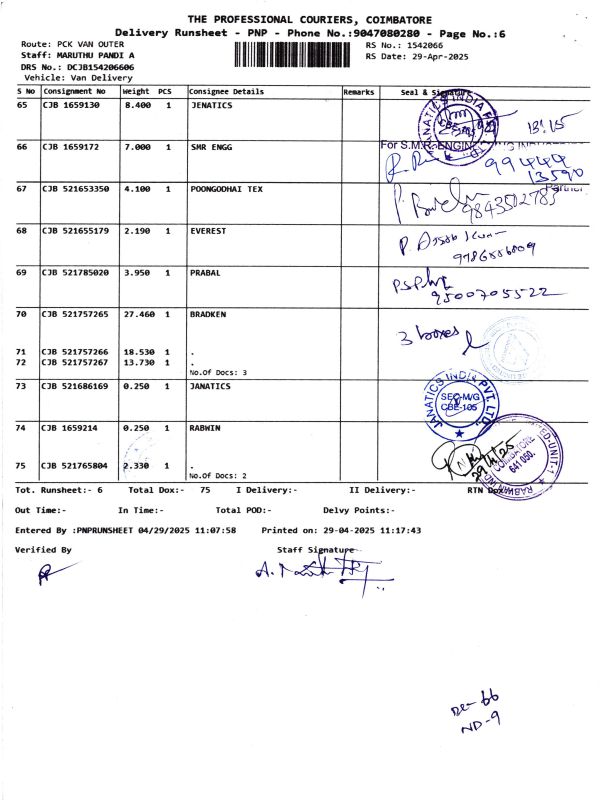 THE PROFESSIONAL COURIERS, COIMBATORE
Delivery Runsheet - PNP - Phone No.:9047080280 - Page No.:6
Route: PCK VAN OUTER
RS No.: 1542066
Staff: MARUTHU PANDI A
RS Date: 29-Apr-2025
DRS No.: DCJB154206606
Vehicle: Van Delivery
S No Consignment No Weight PCS Consignee Details Remarks Seal & Signature
65 CJB 1659130 8.400 1 JENATICS
13:15
66 CJB 1659172 7.000 1 SMR ENGG
For S.M.R. ENGIN
99444
13590
Partner
67 CJB 521653350 4.100 1 POONGODHAI TEX
9843502785
68 CJB 521655179 2.190 1 EVEREST
69 CJB 521785020 3.950 1 PRABAL
9500705522
70 CJB 521757265 27.460 1 BRADKEN
3 boxes
71 CJB 521757266 18.530 1 .
72 CJB 521757267 13.730 1 .
No.Of Docs: 3
73 CJB 521686169 0.250 1 JANATICS
JANATICS INDIA PVT. LTD.
SEC-M/G
CBE-105
74 CJB 1659214 0.250 1 RABWIN
COIMBATORE
641 050.
29/4/25
75 CJB 521765804 2.330 1 .
No.Of Docs: 2
Tot. Runsheet:- 6 Total Dox:- 75 I Delivery:- II Delivery:- RTN Dox:-
Out Time:- In Time:- Total POD:- Delvy Points:-
Entered By :PNPRUNSHEET 04/29/2025 11:07:58 Printed on: 29-04-2025 11:17:43
Verified By Staff Signature
66
ND-9